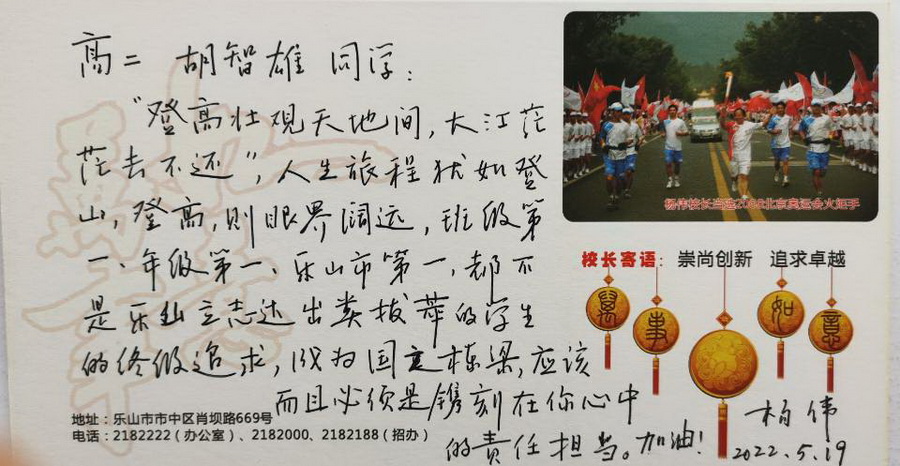 高二 胡智雄 同学：
“登高壮观天地间，大江茫
茫去不还”，人生旅程犹如登
山，登高，则眼界阔远，班级第
一、年级第一、乐山市第一，都不
是乐山立志达出类拔萃的学生
的终极追求，成为国之栋梁，应该
而且必须是镌刻在你心中
的责任担当。加油！
杨伟
2022.5.19
杨伟校长当选2008北京奥运会火炬手
校长寄语：崇尚创新 追求卓越
万事如意
地址：乐山市市中区肖坝路669号
电话：2182222（办公室）、2182000、2182188（招办）